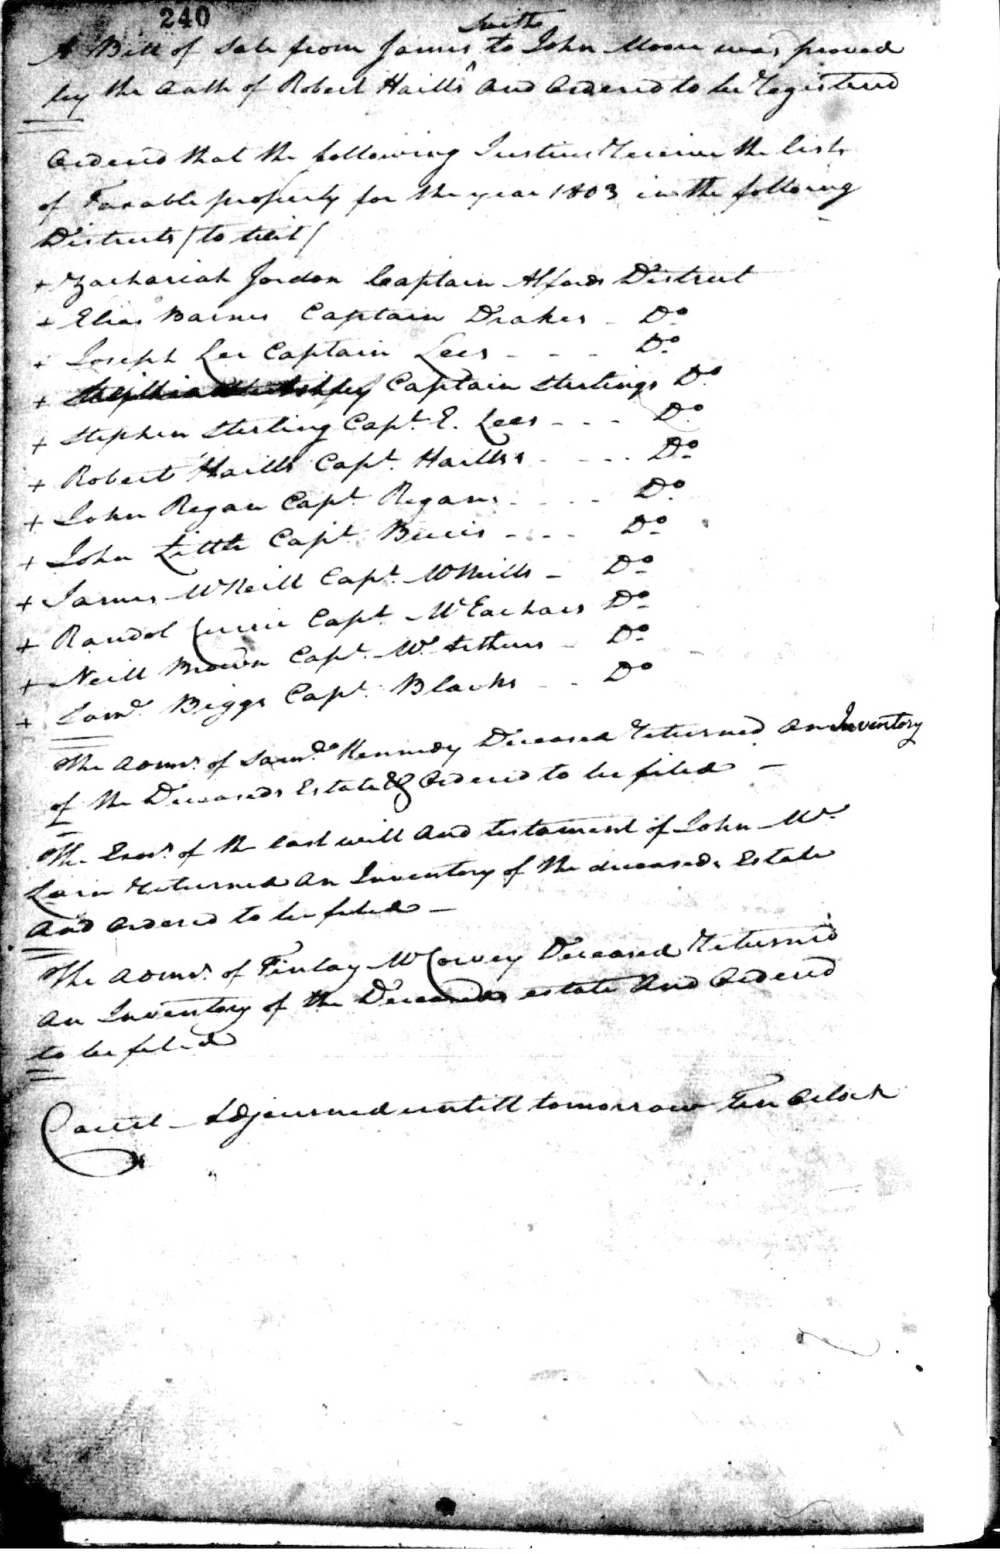 240
Smith
A Bill of Sale from James ^ to John Moore was proved
by the oath of Robert Haills and Ordered to be Registered
Ordered that the following Justices Receive the lists
of Taxable property for the year 1803 in the following
Districts / to wit /
+ Zachariah Jordon Captain Alfords District
+ Elias Barnes Captain Drakes - Do
+ Joseph Lee Captain Lees - - - Do
+ Captain Sterlings Do
+ Stephen Sterling Capt. E. Lees - - - Do
+ Robert Haills Capt. Haills - - - Do
+ John Regan Capt Regans - - - Do
+ John Little Capt - - - Do
+ James McNeill Capt. McNeills - Do
+ Randol Currie Capt McEachars Do
+ Neill Brown Capt. Mc Arthurs - Do
+ Saml. Biggs Capt. Blacks - - Do
The Admr. of Saml. Kennedy Deceased returned an Inventory
of the Deceaseds Estate & Ordered to be filed -
The Exor. of the last will and testament of John Mc
Lain returned an Inventory of the deceaseds Estate
and ordered to be filed -
The Admr. of Finlay Deceased returned
an Inventory of the Deceaseds estate and Ordered
to be filed
Court - Adjourned untill tomorrow Ten Oclock